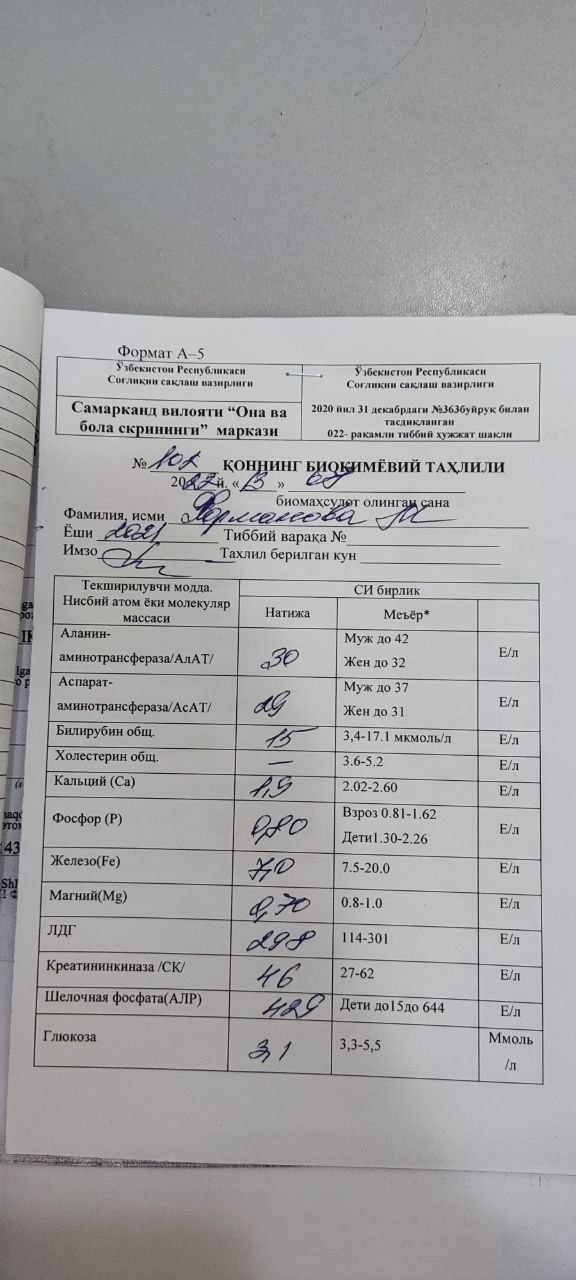 Формат А–5
Ўзбекистон Республикаси
Соғлиқни сақлаш вазирлиги
Самарканд вилояти “Она ва
бола скрининги” маркази
Ўзбекистон Республикаси
Соғлиқни сақлаш вазирлиги
2020 йил 31 декабрдаги №363буйруқ билан
тасдиқланган
022- рақамли тиббий ҳужжат шакли
№ 102 ҚОННИНГ БИОКИМЁВИЙ ТАҲЛИЛИ
й. « 13 »
биомаҳсулот олинган сана
Фамилия, исми Фарманова
Ёши 2021 Тиббий варақа №
Имзо Тахлил берилган кун
Текширилувчи модда. Нисбий атом ёки молекуляр массаси СИ бирлик
Натижа Меъёр*
Аланин-аминотрансфераза/АлАТ/ 30 Муж до 42 Жен до 32 Е/л
Аспарат-аминотрансфераза/АсАТ/ 29 Муж до 37 Жен до 31 Е/л
Билирубин общ. 15 3,4-17.1 мкмоль/л Е/л
Холестерин общ. — 3.6-5.2 Е/л
Кальций (Са) 1,9 2.02-2.60 Е/л
Фосфор (Р) 0,80 Взроз 0.81-1.62 Дети1.30-2.26 Е/л
Железо(Fe) 7,0 7.5-20.0 Е/л
Магний(Mg) 0,70 0.8-1.0 Е/л
ЛДГ 298 114-301 Е/л
Креатининкиназа /СК/ 46 27-62 Е/л
Шелочная фосфата(АЛР) 429 Дети до15до 644 Е/л
Глюкоза 3,1 3,3-5,5 Ммоль/л